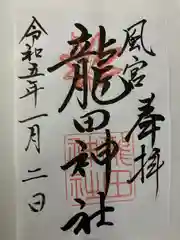 風宮
奉拝
龍田神社
龍田神社
令和五年一月二日